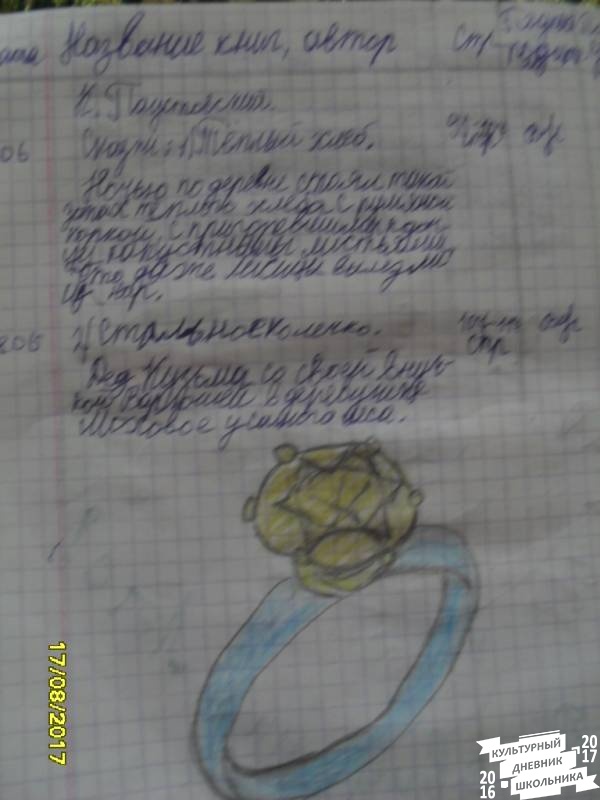 Название книг, автор стр
К. Паустовский.
06 Сказки: 1) Тёплый хлеб. стр
Ночью по деревне стоял такой
запах тёплого хлеба с румяной
коркой, с пригоревшими к дон-
цу капустными листьями
что даже лисицы вылезли
из нор.
206 2) Стальное колечко. стр
Дед Кузьма со своей внуч-
кой Варюшей в деревушке
Моховое у самого леса.
17/08/2017
КУЛЬТУРНЫЙ
ДНЕВНИК
ШКОЛЬНИКА
2016
2017